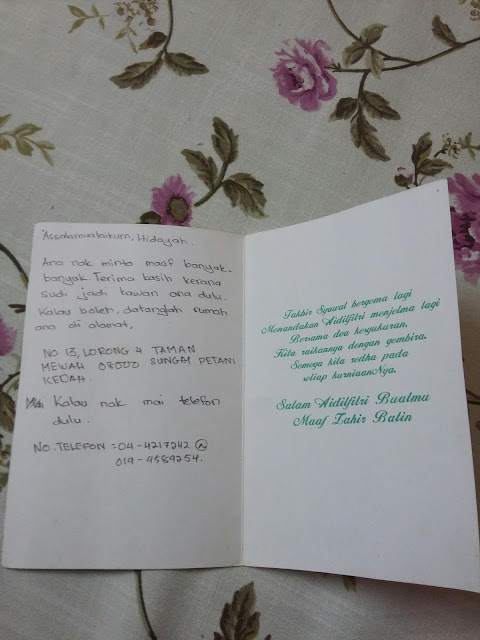 Assalamualaikum, Hidayah.
Ana nak minta maaf banyak-
banyak Terima kasih kerana
sudi jadi kawan ana dulu.
Kalau boleh, datanglah rumah
ana di alamat,
NO 13, LORONG 4 TAMAN
MEWAH 08000 SUNGAI PETANI
KEDAH.
Kalau nak mai telefon
dulu.
NO. TELEFON = 04-4217242 @
019-4589254.
Takbir Syawal bergema lagi
Menandakan Aidilfitri menjelma lagi
Bersama doa kesyukuran,
Kita raikannya dengan gembira.
Semoga kita redha pada
setiap kurniaanNya.
Salam Aidilfitri Buatmu
Maaf Zahir Batin